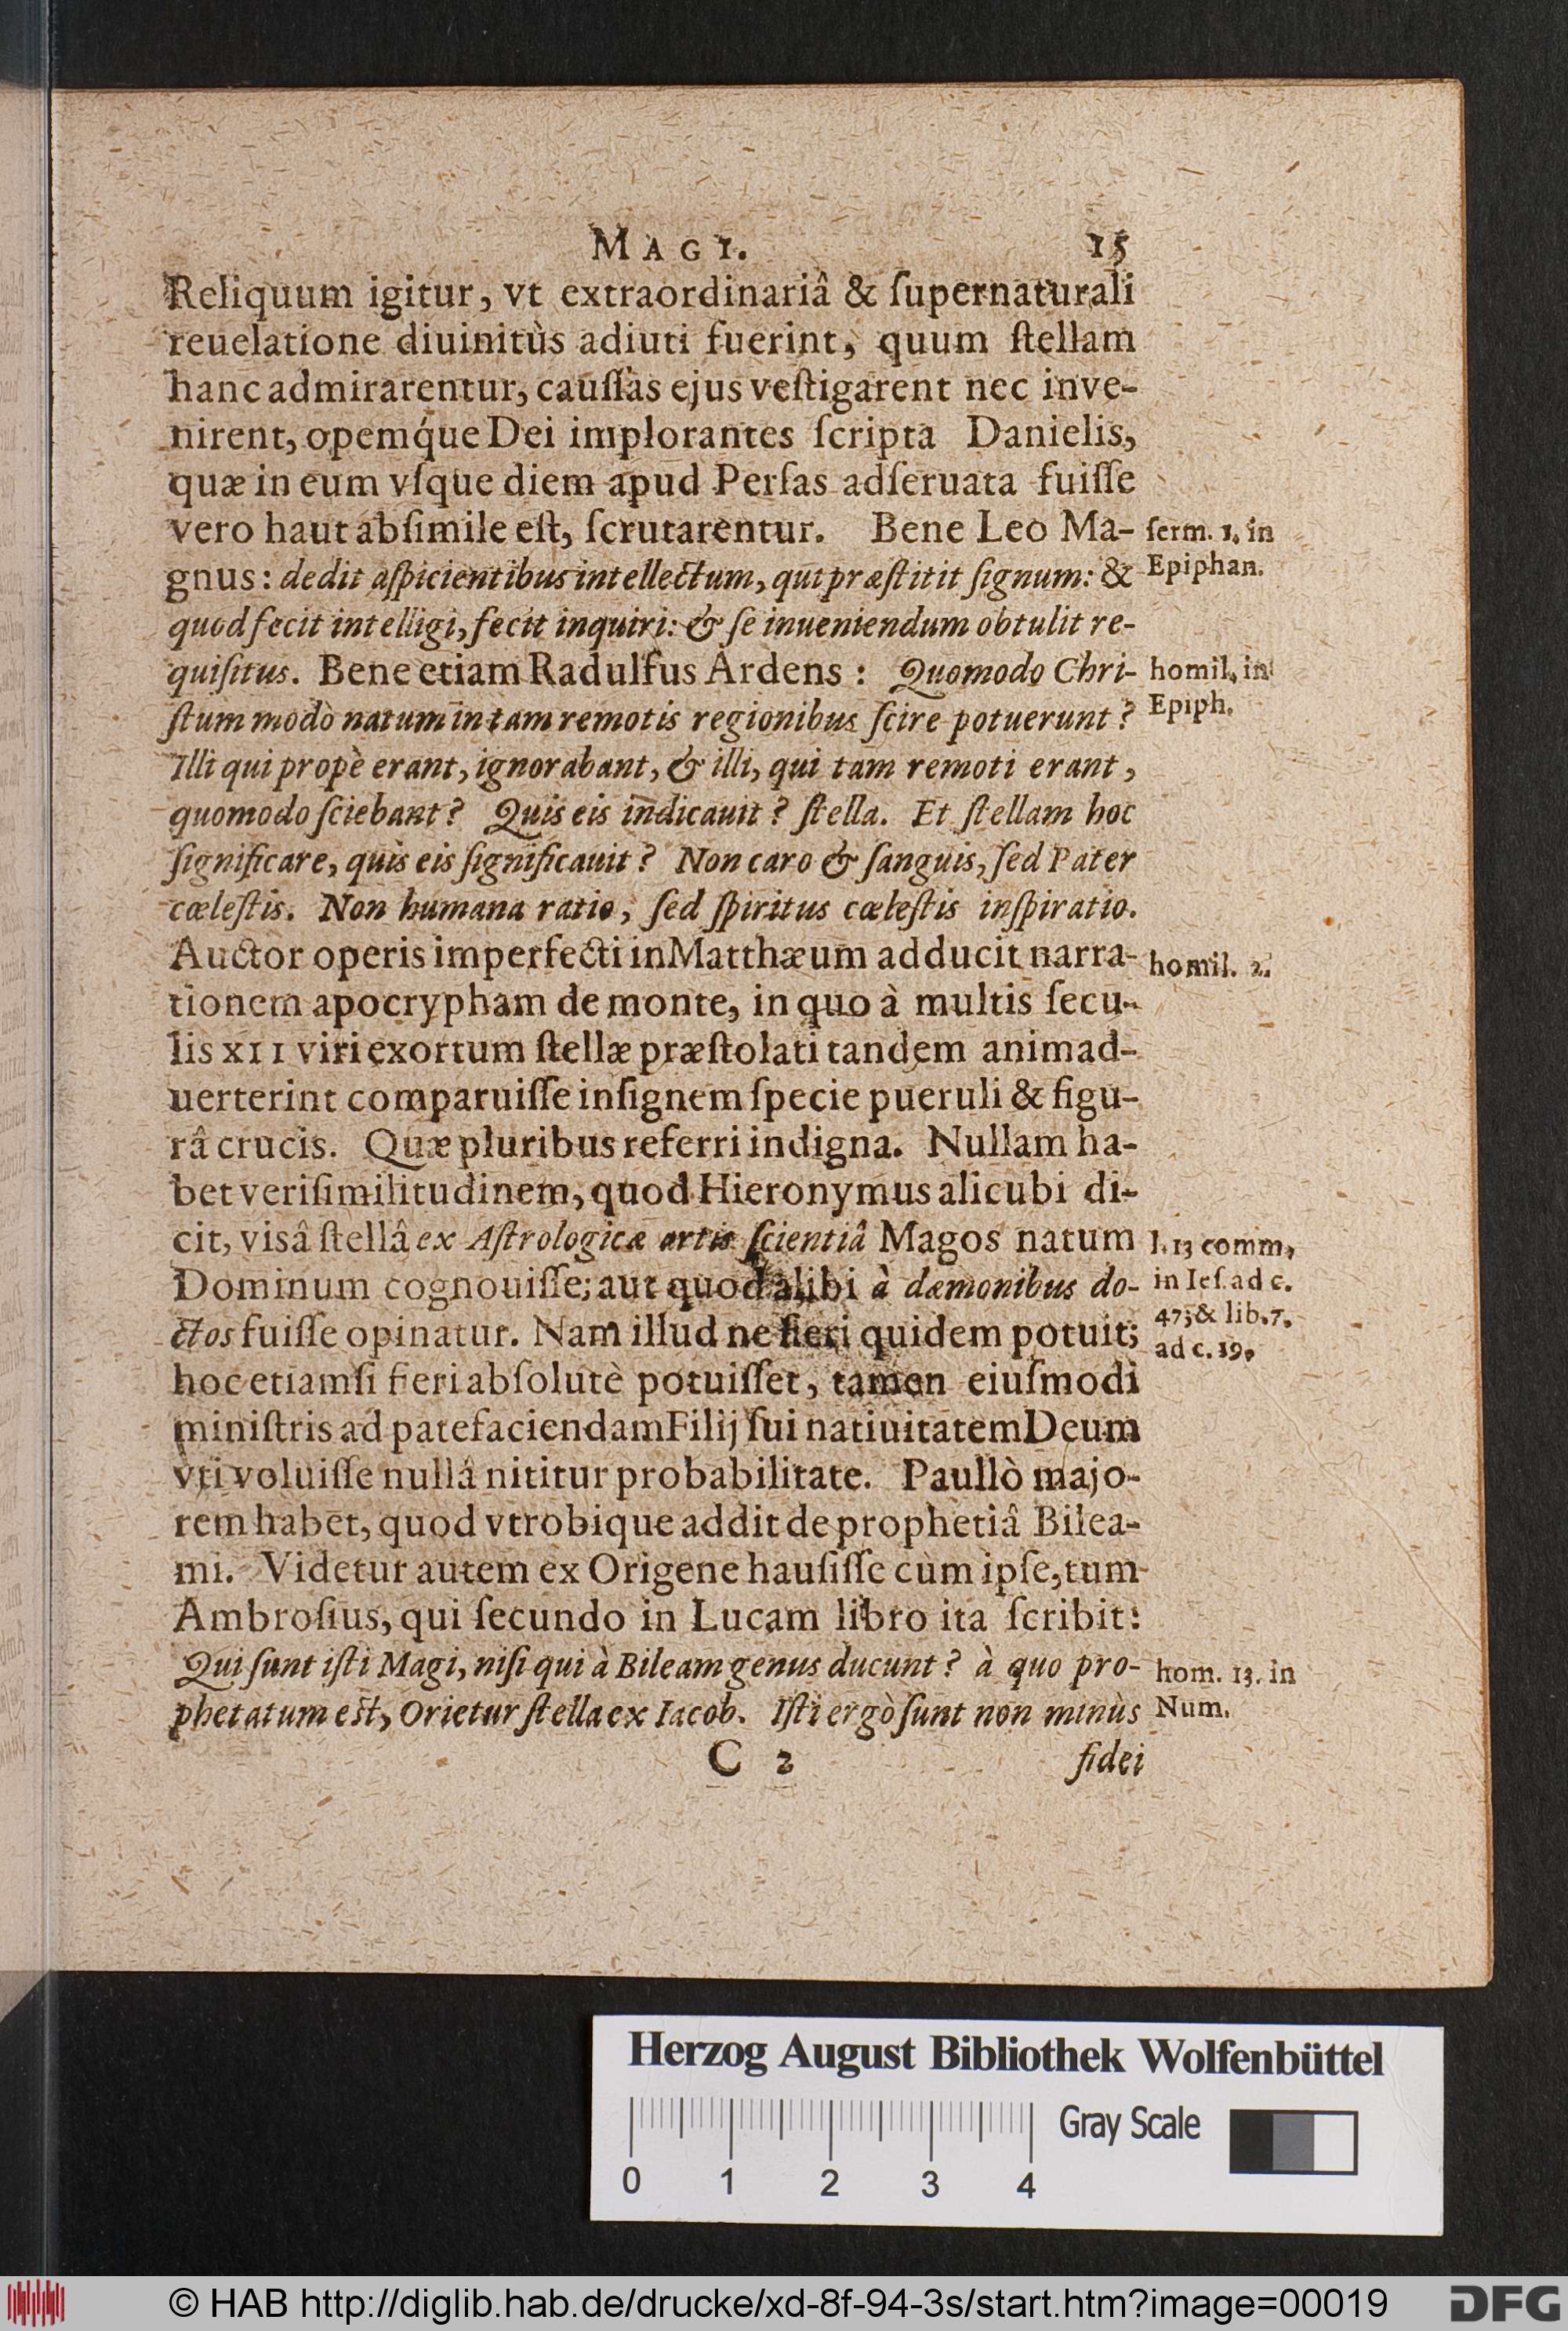 MAGI. 15
Reliquum igitur, vt extraordinariâ & ſupernaturali
reuelatione diuinitùs adiuti fuerint, quum ſtellam
hanc admirarentur, cauſſas ejus veſtigarent nec inve-
nirent, opemq́ue Dei implorantes ſcripta Danielis,
quæ in eum vſque diem apud Perſas adſeruata fuiſſe
vero haut abſimile eſt, ſcrutarentur. Bene Leo Ma-
ſerm. 1. in
gnus: dedit aſpicientibus intellectum, qui præſtitit ſignum: &
Epiphan.
quod fecit intelligi, fecit inquiri: & ſe inueniendum obtulit re-
quiſitus. Bene etiam Radulfus Ardens: Quomodo Chri-
homil. in
ſtum modò natum in tam remotis regionibus ſcire potuerunt?
Epiph.
Illi qui propè erant, ignorabant, & illi, qui tam remoti erant,
quomodo ſciebant? Quis eis indicauit? ſtella. Et ſtellam hoc
ſignificare, quis eis ſignificauit? Non caro & ſanguis, ſed Pater
cœleſtis. Non humana ratio, ſed ſpiritus cœleſtis inſpiratio.
Auctor operis imperfecti in Matthæum adducit narra-
homil. 2.
tionem apocrypham de monte, in quo à multis ſecu-
lis XII viri exortum ſtellæ præſtolati tandem animad-
uerterint comparuiſſe inſignem ſpecie pueruli & figu-
râ crucis. Quæ pluribus referri indigna. Nullam ha-
bet veriſimilitudinem, quod Hieronymus alicubi di-
cit, visâ ſtellâ ex Aſtrologicæ artis ſcientiâ Magos natum
l. 13 comm,
Dominum cognouiſſe; aut quod alibi à dæmonibus do-
in Ieſ. ad c.
ctos fuiſſe opinatur. Nam illud ne fieri quidem potuit;
47; & lib. 7.
ad c. 19.
hoc etiamſi fieri abſolutè potuiſſet, tamen eiuſmodi
miniſtris ad patefaciendam Filij ſui natiuitatem Deum
vti voluiſſe nullâ nititur probabilitate. Paullò majo-
rem habet, quod vtrobique addit de prophetiâ Bilea-
mi. Videtur autem ex Origene hauſiſſe cùm ipſe, tum
Ambroſius, qui ſecundo in Lucam libro ita ſcribit:
Qui ſunt iſti Magi, niſi qui à Bileam genus ducunt? à quo pro-
hom. 13. in
phetatum eſt, Orietur ſtella ex Iacob. Iſti ergò ſunt non minùs
Num.
C 2 fidei
Herzog August Bibliothek Wolfenbüttel
0 1 2 3 4 Gray Scale
© HAB http://diglib.hab.de/drucke/xd-8f-94-3s/start.htm?image=00019 DFG